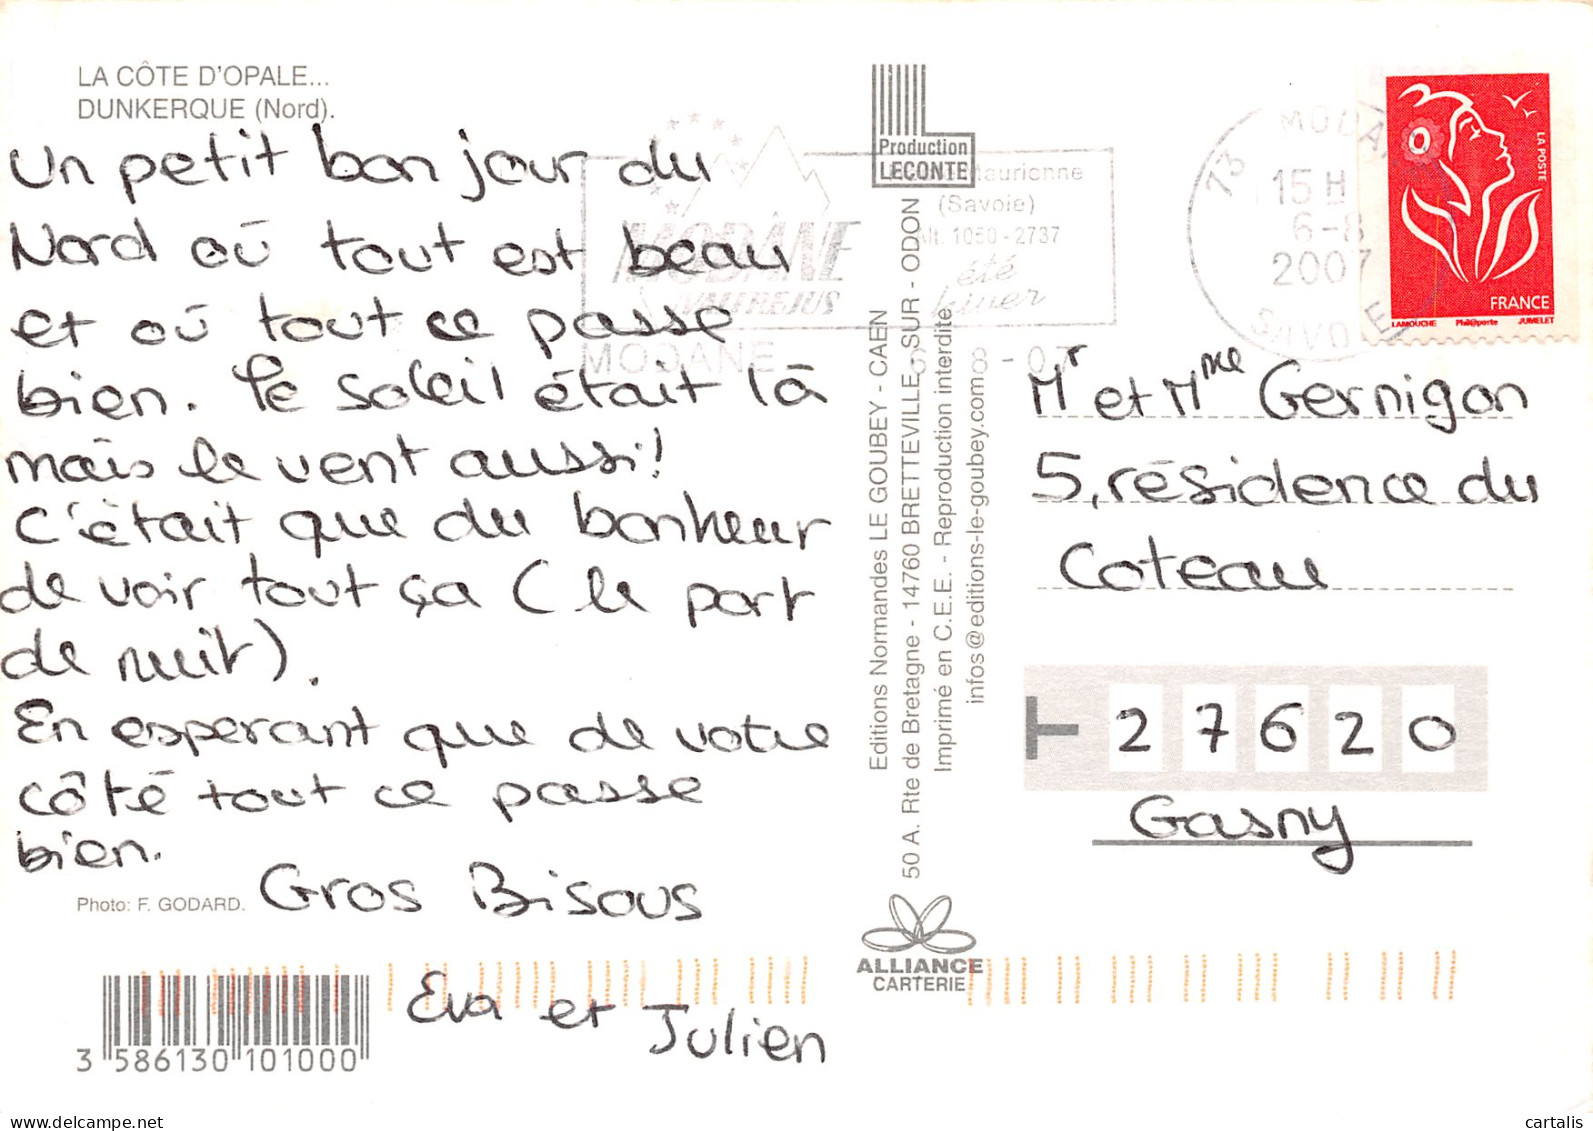 LA CÔTE D'OPALE...
DUNKERQUE (Nord).
Un petit bonjour du
Nord où tout est beau
et où tout ce passe
bien. Le soleil était là
mais le vent aussi!
C'était que du bonheur
de voir tout ça (le port
de nuit).
En esperant que de votre
côté tout ce passe
bien.
Gros Bisous
Eva et
Julien
Photo: F. GODARD.
3 586130 101000
Production
LECONTE
Editions Normandes LE GOUBEY - CAEN
50 A. Rte de Bretagne - 14760 BRETTEVILLE - SUR - ODON
Imprimé en C.E.E. - Reproduction interdite
infos@editions-le-goubey.com
ALLIANCE
CARTERIE
MODANE
VALFREJUS
MODANE
(Savoie)
Alt. 1050-2737
été
hiver
6-8-07
73
15 H
6-8
2007
LA POSTE
FRANCE
LAMOUCHE Phil@poste JUMELET
Mr et Mme Gernigon
5, résidence du
Coteau
27620
Gasny
delcampe.net
cartalis